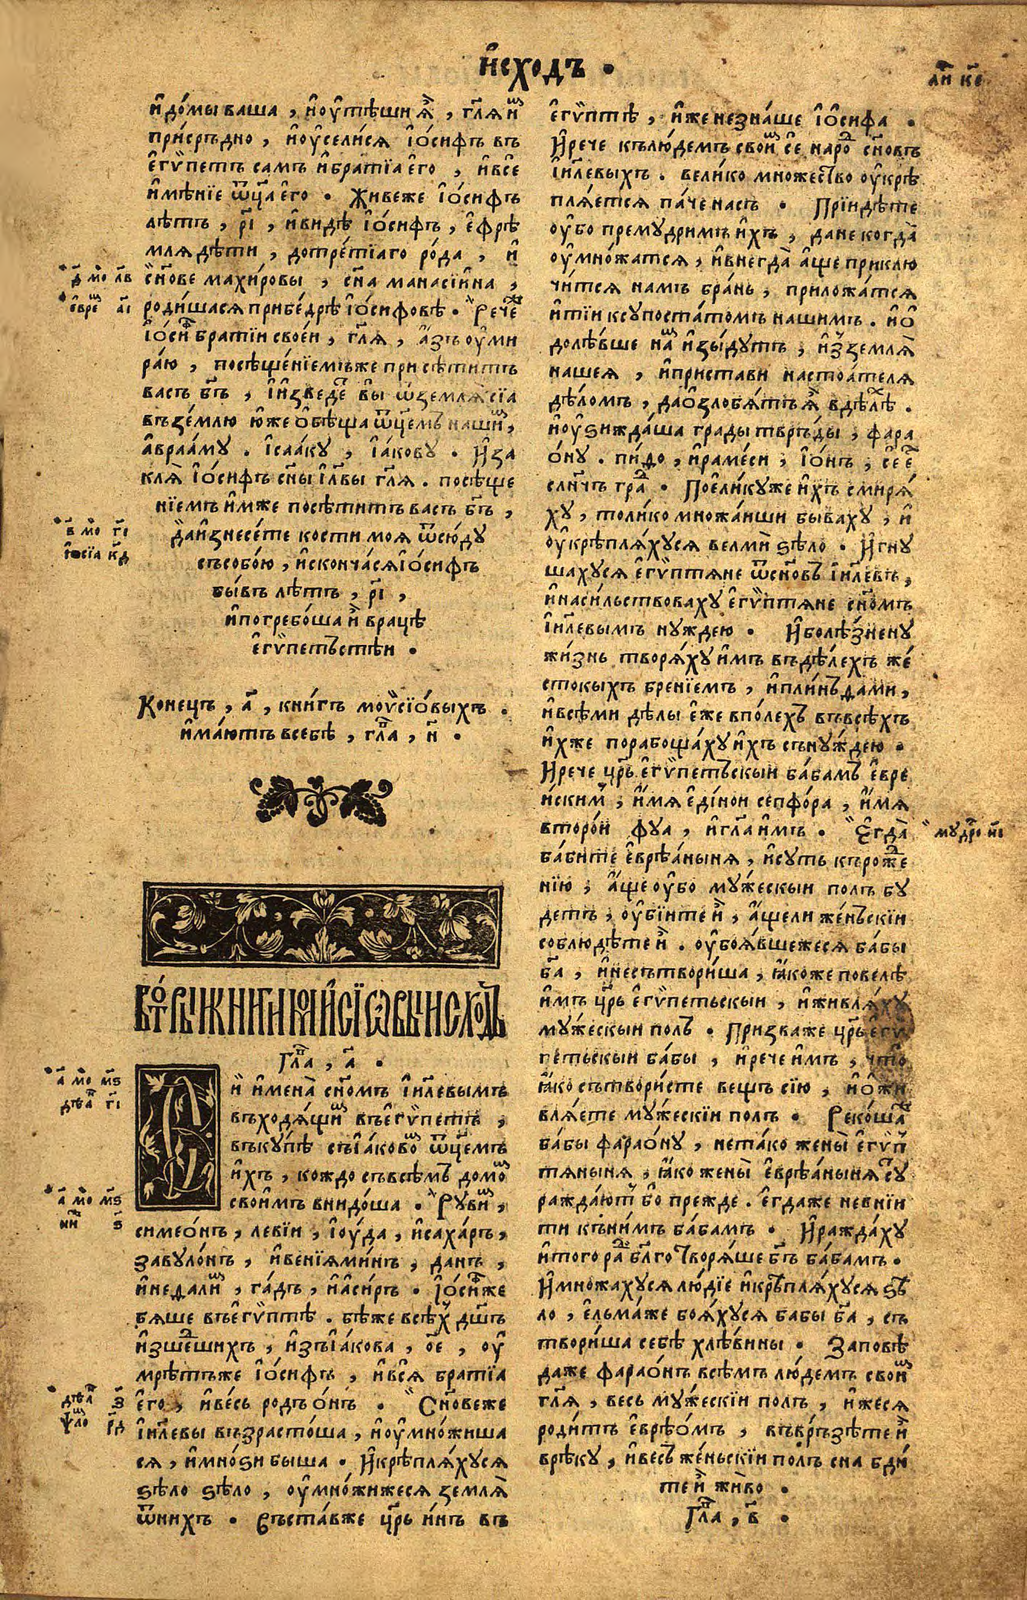 и҆схо́дъ .
и҆до́мы ваша , и҆оу҆тѣши ѧ҆̀ , гл҃ѧ и҆мⷭ
присрьдно , и҆оу҆селисѧ і҆о́сифъ въ
є҆гѵ́петъ самъ и҆братїѧ є҆го , и҆всѐ
и҆мѣнїе ѿц҃а є҆го . Живеже і҆о́сифъ
лѣтъ , р҃і , и҆видѣ і҆о́сифъ , є҆фрѐ
млѧ дѣти , дотре́тїаго ро́да , и҆
сн҃ове махи́ровы , сн҃а манасїи҆на ,
роди́шасѧ прибе́дрѣ і҆о́сифовѣ . Рече́
і҆о́сиⷴ братїи своеи , гл҃ѧ , а҆зъ оу҆ми
ра́ю , посѣще́нїемъже при сѣти́тъ
васъ бг҃ъ , и҆изведе́ вы ѿземлѧ̀ сїа
въ зе́млю ю҆же о҆бѣща ѿц҃емъ наши́ ,
авраа́му . і҆саа́ку , і҆а́кову . И҆за
клѧ̀ і҆о́сифъ сн҃ы і҆и҃лвы гл҃ѧ . посѣще
нїемъ и҆мже посѣтитъ васъ бг҃ъ ,
да и҆знесе́те кости моѧ ѿсю́ду
съсобо́ю , и҆сконча́сѧ і҆о́сифъ
бы́въ лѣтъ , р҃і ,
и҆погребо́ша и҆ враце́
є҆гѵ́петъстѣи .
Коне́цъ , а҃ , кни́гъ моѵ҆сїо́выхъ .
и҆ма́ютъ всебѣ , гл҃а , н҃ .
вто́рыѧ кни́ги моѵ҆сїѡвы и҆схо́дъ
Гл҃а , а҃ .
Сїи и҆мена̀ сн҃омъ і҆и҃левымъ
въходѧ́щиⷯ въ є҆гѵ́петъ ,
въкупѣ съ і҆а́ковоⷨ ѿц҃емъ
и҆хъ , кождо съвсѣмъ домоⷨ
свои́мъ внидо́ша . Руви́ⷨ ,
симео́нъ , леві́и , і҆оу́да , и҆саха́ръ ,
завуло́нъ , и҆венїами́нъ , данъ ,
и҆недали́ⷨ , га́дъ , и҆аси́ръ . І҆о́сиⷴже
бѧше въ є҆гѵ́птѣ . бѣже всѣⷯ дш҃ъ
и҆зше́шихъ , и҆зъ і҆а́кова , о҃е , оу҆
мрѣтъже і҆о́сифъ , и҆всѧ братїѧ
є҆го , и҆ве́сь родъ о҆нъ . Сн҃овеже
і҆и҃левы възрасто́ша , и҆оу҆мно́жиша
сѧ , и҆мно́ѕи быша . И҆крѣплѧ́хусѧ
ѕѣло ѕѣло , оу҆мно́жижесѧ землѧ̀
ѿни́хъ . Въста́вже цр҃ь и҆нъ въ
є҆гѵ́птѣ , и҆же незна́ше і҆о́сифа .
И҆рече къ лю́демъ свои́ⷨ се́ наро́ⷣ сн҃овъ
і҆и҃левыхъ . вели́ко мно́жество оу҆крѣ
плѧ́етсѧ па́че насъ . Прїидѣ́те
оу҆бо премудри́мъ и҆хъ , да не когда̀
оу҆мно́жатсѧ , и҆внегда̀ а҆ще приклю
чи́тсѧ намъ бра́нь , прило́жатсѧ
и҆тїи ксупоста́томъ на́шимъ . и҆о҆
долѣ́вше на́ⷭ и҆зы́дутъ , и҆зземлѧ̀
нашеѧ , и҆приста́ви настоѧ́телѧ
дѣло́мъ , да о҆зло́бѧтъ ѧ҆̀ вдѣлѣ .
И҆оу҆ѕижда́ша гра́ды тврьды , фара
о́ну . пи́до , и҆раме́си , і҆о́нъ , се́ е҆
слнчъ гра́ⷣ . Поели́куже и҆хъ смирѧ́
ху , толи́ко множа́иши быва́ху , и҆
оу҆крѣплѧ́хусѧ велми́ ѕѣло . И҆гну
ша́хусѧ є҆гѵ́птѧне ѿсн҃овъ і҆и҃левъ ,
и҆наси́льствоваху є҆гѵ́птѧне сн҃омъ
і҆и҃левымъ ну́ждею . И҆болѣ́знену
жи́знь творѧ́ху и҆мъ въдѣ́лехъ же́
стокыхъ бре́нїемъ , и҆пли́нъѳами ,
и҆всѣми дѣлы е҆же впо́лехъ въвсѣхъ
и҆хже порабоща́ху и҆хъ съну́ждею .
И҆рече цр҃ь є҆гѵ́петъскыи ба́бамъ є҆вре
и҆ски́мъ , и҆мѧ є҆ди́нои сепфо́ра , и҆мѧ
второ́и фуа , и҆гл҃а и҆мъ . Е҆гда̀
ба́бите є҆врѣа́нынѧ , и҆суть къроже́
нїю , а҆ще оу҆бо му́жескыи полъ бу
детъ , оу҆бі́ите и҆̀ , а҆щели же́ньскїи
соблюдѣ́те и҆̀ . оу҆боѧ́вшежесѧ ба́бы
бг҃а , и҆несътвори́ша , ꙗ҆́коже повелѣ̀
и҆мъ цр҃ь є҆гѵ́петьскыи , и҆живлѧ́ху
му́жескыи полъ . Призва́же цр҃ь є҆гѵ́
петьскыи ба́бы , и҆рече и҆мъ , что̀
ꙗ҆́ко сътвори́сте вещъ сїю , и҆о҆жи
влѧ́ете му́жескїи полъ . Реко́шаⷤ
ба́бы фарао́ну , не та́ко жены̀ є҆гѵ́п
тѧнынѧ , ꙗ҆́ко жены̀ є҆врѣа́нынѧ су́
ражда́ют бо пре́жде . е҆гда́же невнїи
ти къни́мъ ба́бамъ . И҆ражда́ху
и҆того ра́ⷣ бл҃го творѧ́ше бг҃ъ ба́бамъ .
И҆множахусѧ лю́дїе и҆крѣплѧ́хусѧ ѕѣ
ло , е҆льма́же боѧ́хусѧ ба́бы бг҃а , съ
твори́ша себѣ хлѣ́вины . Заповѣ́
даже фарао́нъ всѣмъ лю́демъ свои́ⷨ
гл҃ѧ , весь му́жескїи полъ , и҆жесѧ
роди́тъ є҆врѣо́мъ , въврь́зѣте и҆̀
врѣку , и҆весь же́ньскїи полъ сна бди́
те и҆̀ жи́во .
Гл҃а , в҃ .